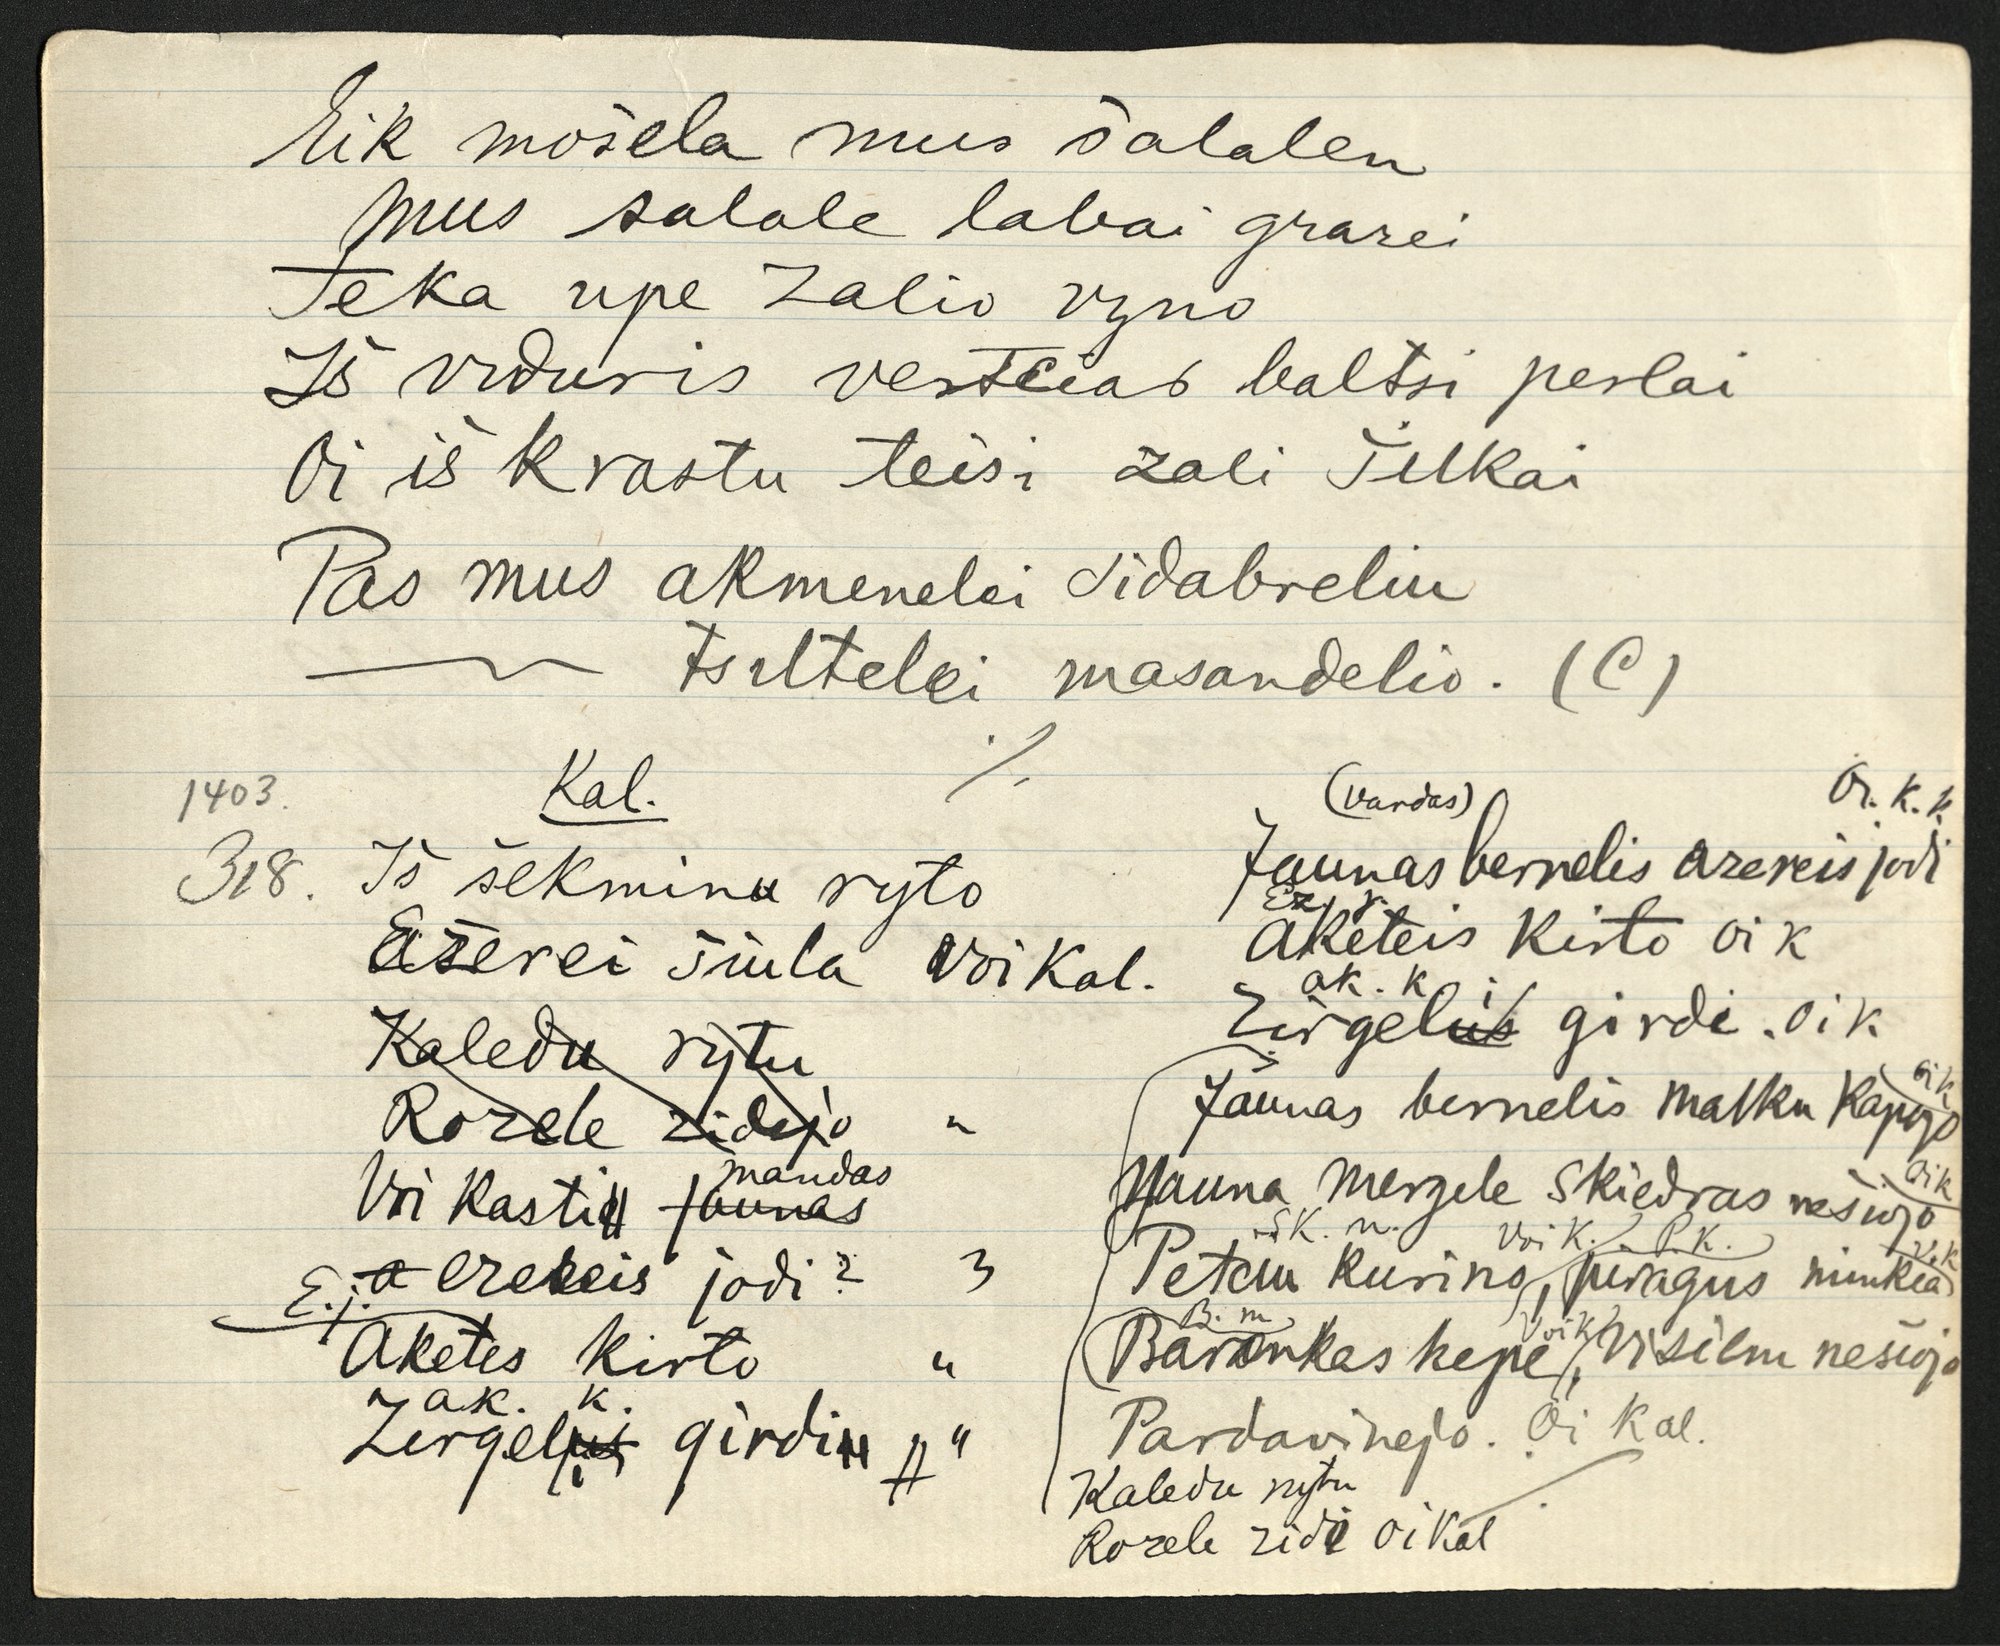 Eik mošela mus šalalen
Mus salale labai grazei
Teka upe zalio vyno
Iš viduris vertcias baltsi perlai
Oi iš krastu teisi zali šilkai
Pas mus akmenelei sidabreliu
tsiltelei masandelio. (C)
1403.
Kal.
318. Iš šekminu ryto
ašerei šiula Voi Kal.
Kaledu rytu
Rozele zidejo "
mandas
Voi Kasti jaunas
E. j. a ezereis jodi?
Aketes kirto "
ak. k.
Zergelis girdi "
(vardas) Oi. k. k.
Jaunas bernelis azereis jodi
Ez. j.
Aketeis kirto oi k
ak. k
Zirgelus girdi. oi k
Jaunas bernelis malku kapojo oi k
Jauna mergele skiedras nešiojo oi k
sk. n. voi k. P. k.
Petciu kurino, piragus minkia v. k
B. m. voi k
Barankas kepe, visiem nešiojo
Pardavinejo. Oi Kal.
Kaledu rytu
Rozele zidi oi kal